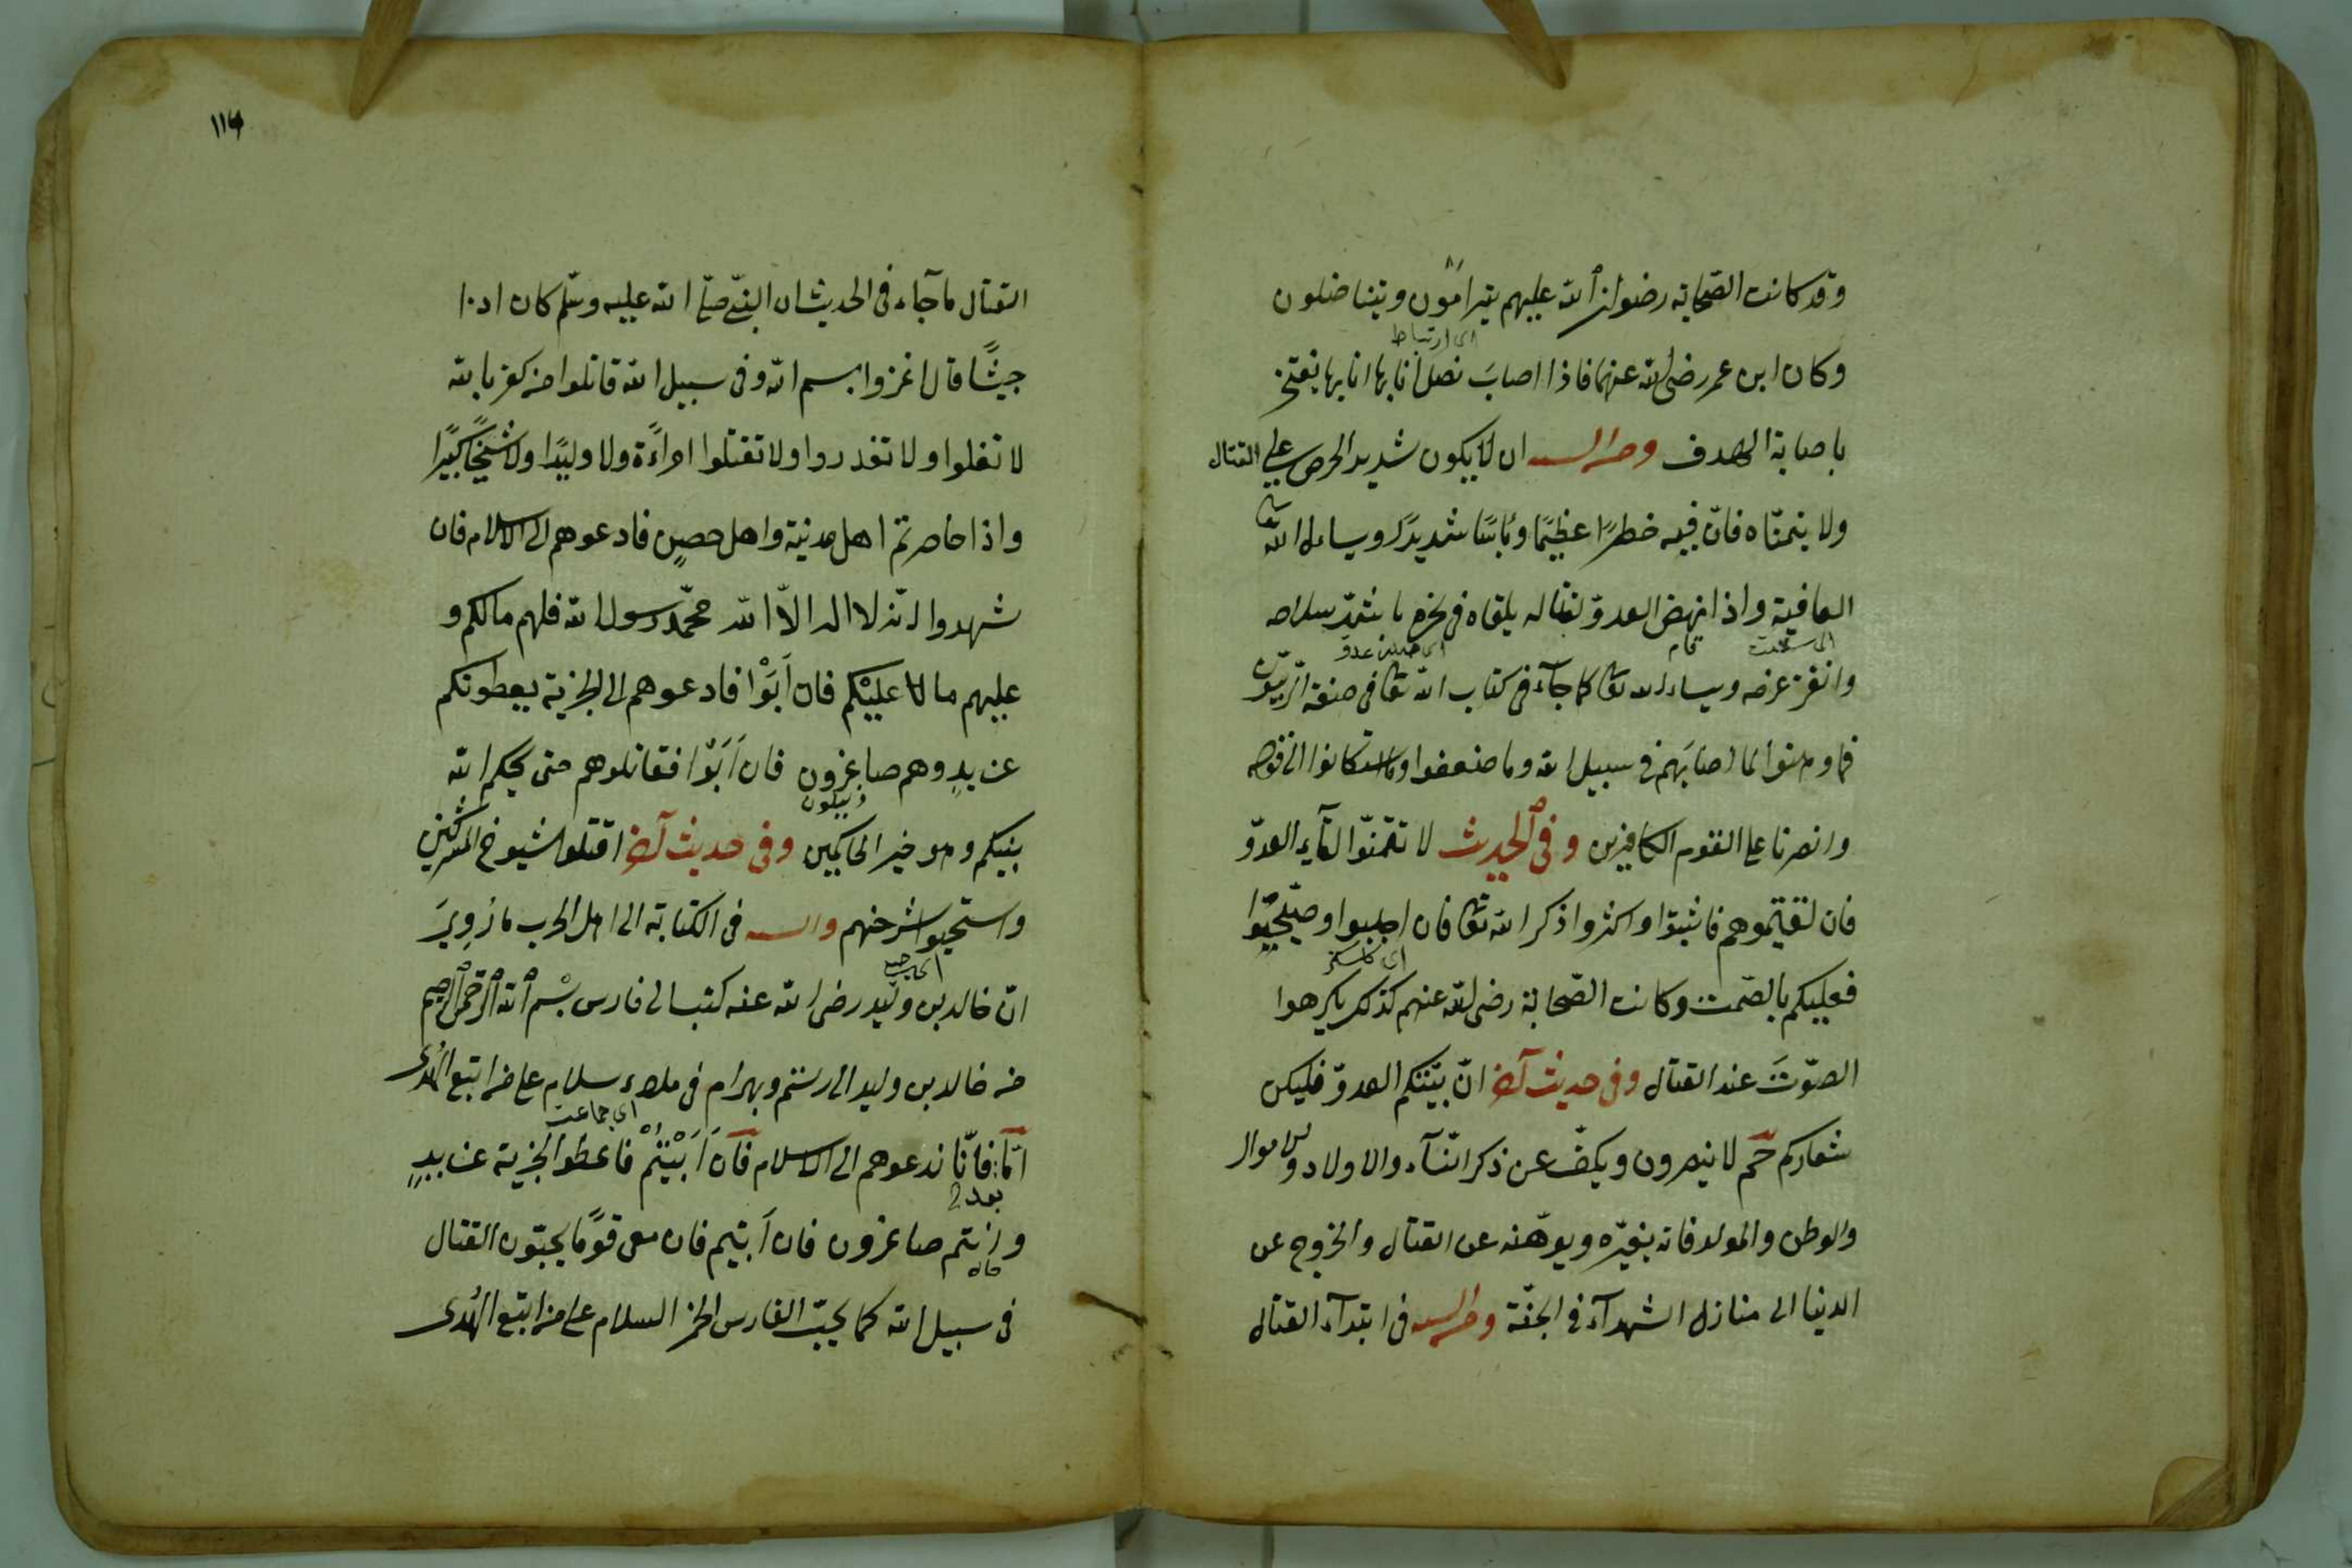 وقد كانت الصّحابة رضوان الله عليهم يترامون ويتناضلون
اى ارتباط
وكان ابن عمر رضى الله عنهما فاذا اصاب نصل انا بها انا بها يفتخر
باصابة الهدف ومن السنة ان لا يكون شديد الحرص على القتال
ولا يتمنّاه فانّ فيه خطرًا عظيمًا وبأسًا شديدًا ويساءل الله تعالى
العافية واذا نهض العدوّ لقتاله يلقاه فى بأشدّ سلاحه
وانفر ويساءل الله تعالى كما جآء فى كتاب الله تعالى فى صفة الرّبّيّون
فما وهنوا لما اصابهم فى سبيل الله وما ضعفوا وما استكانوا الى قوله
وانصرنا على القوم الكافرين وفى الحديث لا تتمنّوا لقآء العدوّ
فان لقيتموهم فاثبتوا واكثروا ذكر الله تعالى فان اجلبوا وصيّحوا
فعليكم بالصّمت وكانت الصّحابة رضى الله عنهم كذلك يكرهوا
الصّوت عند القتال وفى حديث آخر انّ بيّتكم العدوّ فليكن
شعاركم حم لا ينصرون ويكفّ عن ذكر النّسآء والاولاد والاموال
والوطن والمولد فانه يغيّره ويوهّنه عن القتال والخروج عن
الدنيا الى منازل الشهدآء فى الجنّة ومن السنة فى ابتدآء القتال
١١٤
القتال ما جآء فى الحديث ان النبىّ صلّى الله عليه وسلّم كان اذا
جيشًا قال اغزوا بسم الله وفى سبيل الله قاتلوا من كفر بالله
لا تغلوا ولا تغدروا ولا تقتلوا امراءة ولا وليدًا ولا شيخًا كبيرًا
واذا حاصرتم اهل مدينة واهل حصن فادعوهم الى الاسلام فان
شهدوا انّه لا اله الّا الله محمّد رسول الله فلهم مالكم و
عليهم ما لا عليكم فان ابَوْا فادعوهم الى الجزية يعطونكم
عن يدٍ وهم صاغرون فان ابَوْا فقاتلوهم حتى يحكم الله
ذليلون
بينكم وهو خير الحاكمين وفى حديث آخر اقتلوا شيوخ المشركين
واستحيوا شرخهم والسنة فى الكتابة الى اهل الحرب ما روِىَ
انّ خالد بن وليد رضى الله عنه كتب الى فارس بسم الله الرّحمن الرّحيم
من خالد بن وليد الى رستم وبهرام فى ملاء سلام على من اتبع الهدى
اى جماعت
امّا فانّا ندعوهم الى الاسلام فان ابَيْتُمْ فاعطوا الجزية عن يدٍ
بعد
وانتم صاغرون فان ابيتم فان معى قومًا يحبّون القتال
فى سبيل الله كما يحبّ الفارس الخمر السلام على من اتبع الهدى